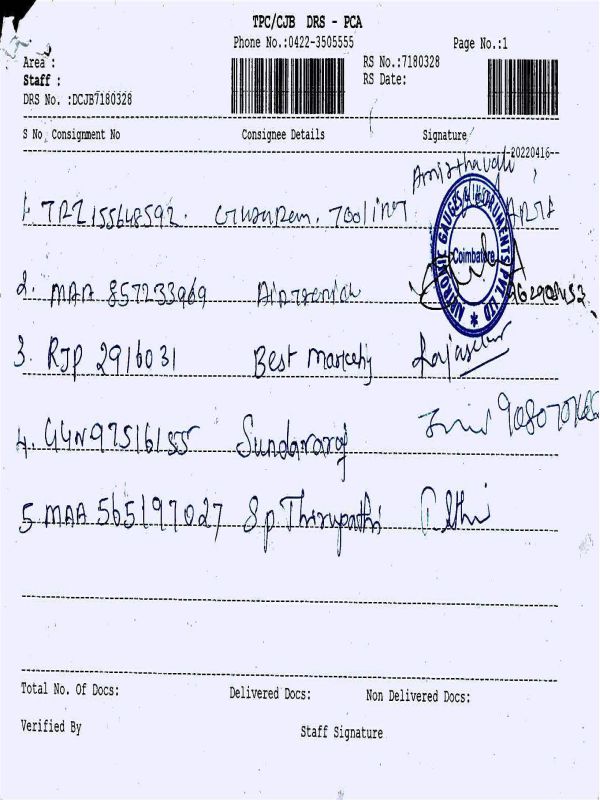 TPC/CJB DRS - PCA
Phone No.:0422-3505555 Page No.:1
Area :
RS No.:7180328
Staff :
RS Date:
DRS No. :DCJB7180328
S No Consignment No Consignee Details Signature
20220416
Amirthavali
1. TRZ155648592. Tooling
NIKRONIC GAUGES & INSTRUMENTS PVT LTD
Coimbatore
2. MAA 857233969
3. RJP 2916031 Best Rajasekar
4. GGN97516155 Sundararaj
5 MAA 565197027 S.p. Thirupathi
Total No. Of Docs: Delivered Docs: Non Delivered Docs:
Verified By
Staff Signature